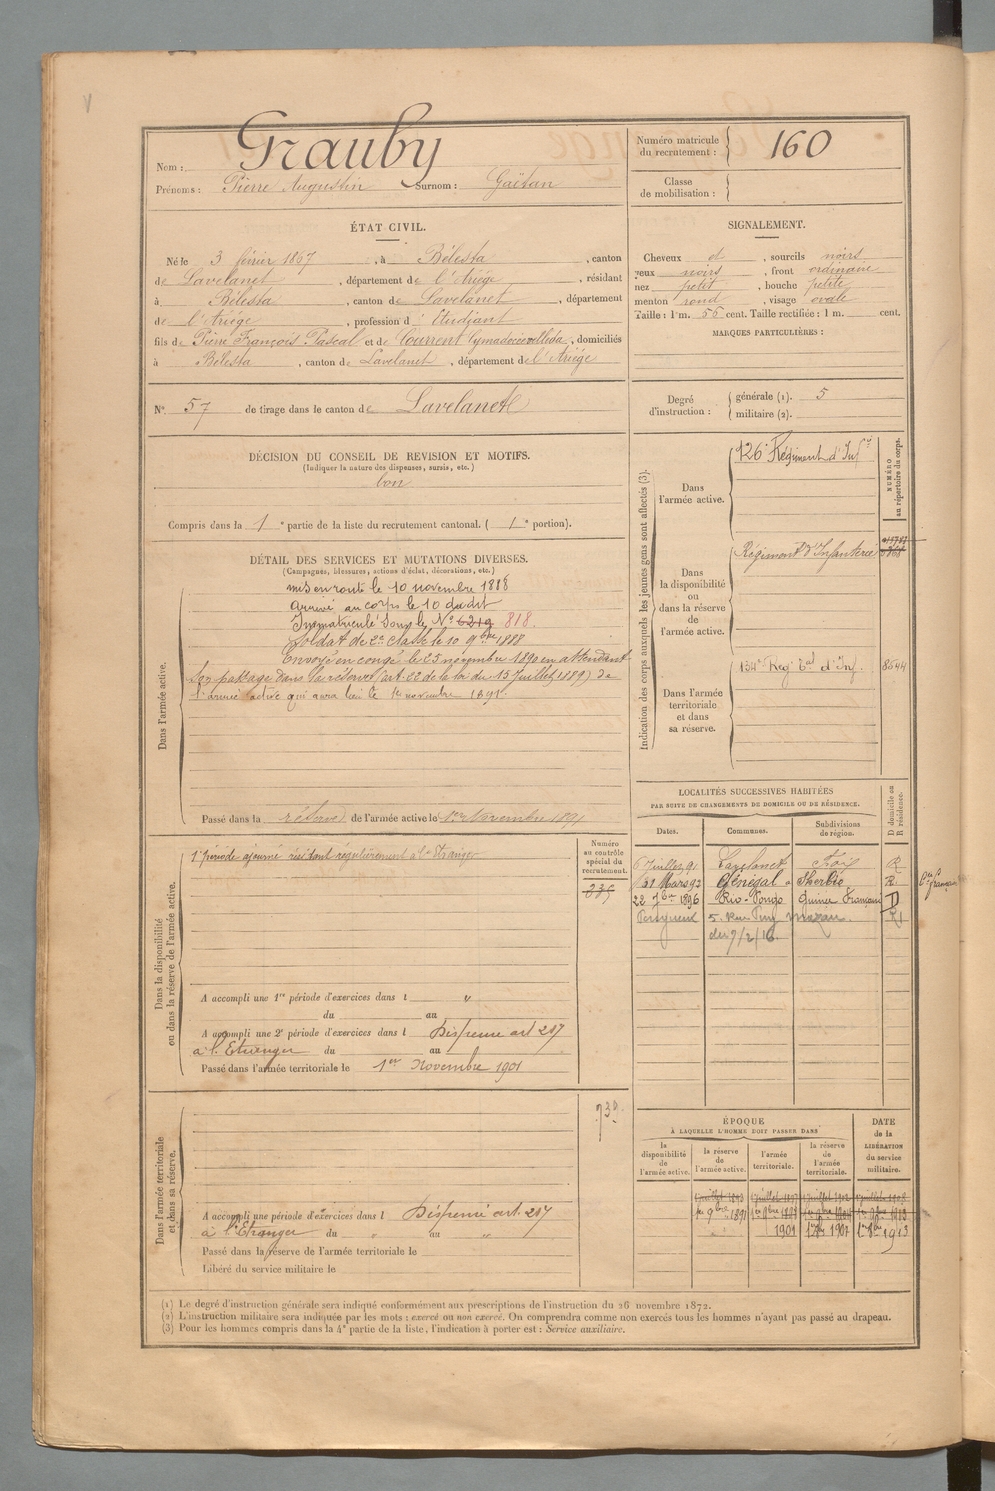 Nom : Grauby
Prénoms : Pierre Augustin Surnom : Gaëtan
Numéro matricule du recrutement : 160
Classe de mobilisation :
ÉTAT CIVIL.
Né le 3 février 1867, à Bélesta, canton
de Lavelanet, département de l'Ariége, résidant
à Bélesta, canton de Lavelanet, département
de l'Ariége, profession d'Etudiant
fils de Pierre François Pascal et de Courrent, domiciliés
à Bélesta, canton de Lavelanet, département de l'Ariége
N° 57 de tirage dans le canton de Lavelanet
SIGNALEMENT.
Cheveux et, sourcils noirs
yeux noirs, front ordinaire
nez petit, bouche petite
menton rond, visage ovale
Taille : 1 m. 55 cent. Taille rectifiée : 1 m. cent.
MARQUES PARTICULIÈRES :
Degré d'instruction : générale (1). 5
militaire (2).
DÉCISION DU CONSEIL DE REVISION ET MOTIFS.
(Indiquer la nature des dispenses, sursis, etc.)
bon
Compris dans la 1e partie de la liste du recrutement cantonal. (1e portion).
DÉTAIL DES SERVICES ET MUTATIONS DIVERSES.
(Campagnes, blessures, actions d'éclat, décorations, etc.)
Dans l'armée active.
mis en route le 10 novembre 1888
arrivé au corps le 10 du dit
Immatriculé sous le N° 6219 818.
Soldat de 2e classe le 10 9bre 1888
Envoyé en congé le 23 novembre 1890 en attendant
son passage dans la réserve (art. 22 de la loi du 15 Juillet 1889) de
l'armée active qui aura lieu le 1er novembre 1891.
Passé dans la réserve de l'armée active le 1er Novembre 1891
Indication des corps auxquels les jeunes gens sont affectés (3).
NUMÉRO au répertoire du corps.
Dans l'armée active.
126e Régiment d'Infie
Dans la disponibilité ou dans la réserve de l'armée active.
Régiment d'Infanterie
Dans l'armée territoriale et dans sa réserve.
134e Reg. Tal d'Inf. 8644
LOCALITÉS SUCCESSIVES HABITÉES
PAR SUITE DE CHANGEMENTS DE DOMICILE OU DE RÉSIDENCE.
Dates. Communes. Subdivisions de région. D domicile ou R résidence.
6 Juillet 91 Lavelanet Foix R
31 Mars 92 Sénégal R
22 7bre 1896 Rio-Pongo Guinée Française D
5. Rue Puy
du 7/2/16
Dans la disponibilité ou dans la réserve de l'armée active.
Numéro au contrôle spécial du recrutement.
235
1e période ajourné résidant regulièrement à l'Etranger
A accompli une 1re période d'exercices dans l "
du au
A accompli une 2e période d'exercices dans l Dispensé art 217
à l'Etranger du au
Passé dans l'armée territoriale le 1er Novembre 1901
Dans l'armée territoriale et dans sa réserve.
730.
A accompli une période d'exercices dans l Dispensé art. 217
à l'Etranger du " au "
Passé dans la réserve de l'armée territoriale le
Libéré du service militaire le
ÉPOQUE
À LAQUELLE L'HOMME DOIT PASSER DANS
la disponibilité de l'armée active.
la réserve de l'armée active.
l'armée territoriale.
la réserve de l'armée territoriale.
DATE de la LIBÉRATION du service militaire.
1er 9bre 1891
1901 1907 1913
(1) Le degré d'instruction générale sera indiqué conformément aux prescriptions de l'instruction du 26 novembre 1872.
(2) L'instruction militaire sera indiquée par les mots : exercé ou non exercé. On comprendra comme non exercés tous les hommes n'ayant pas passé au drapeau.
(3) Pour les hommes compris dans la 4e partie de la liste, l'indication à porter est : Service auxiliaire.